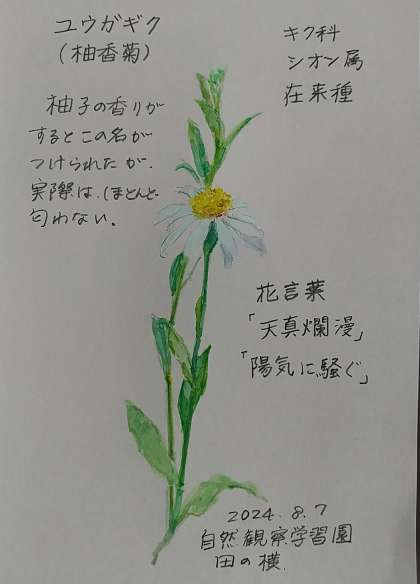 ユウガギク
(柚香菊)
キク科
シオン属
在来種
柚子の香りが
するとこの名が
つけられたが、
実際は、ほとんど
匂わない。
花言葉
「天真爛漫」
「陽気に騒ぐ」
2024.8.7
自然観察学習園
田の横